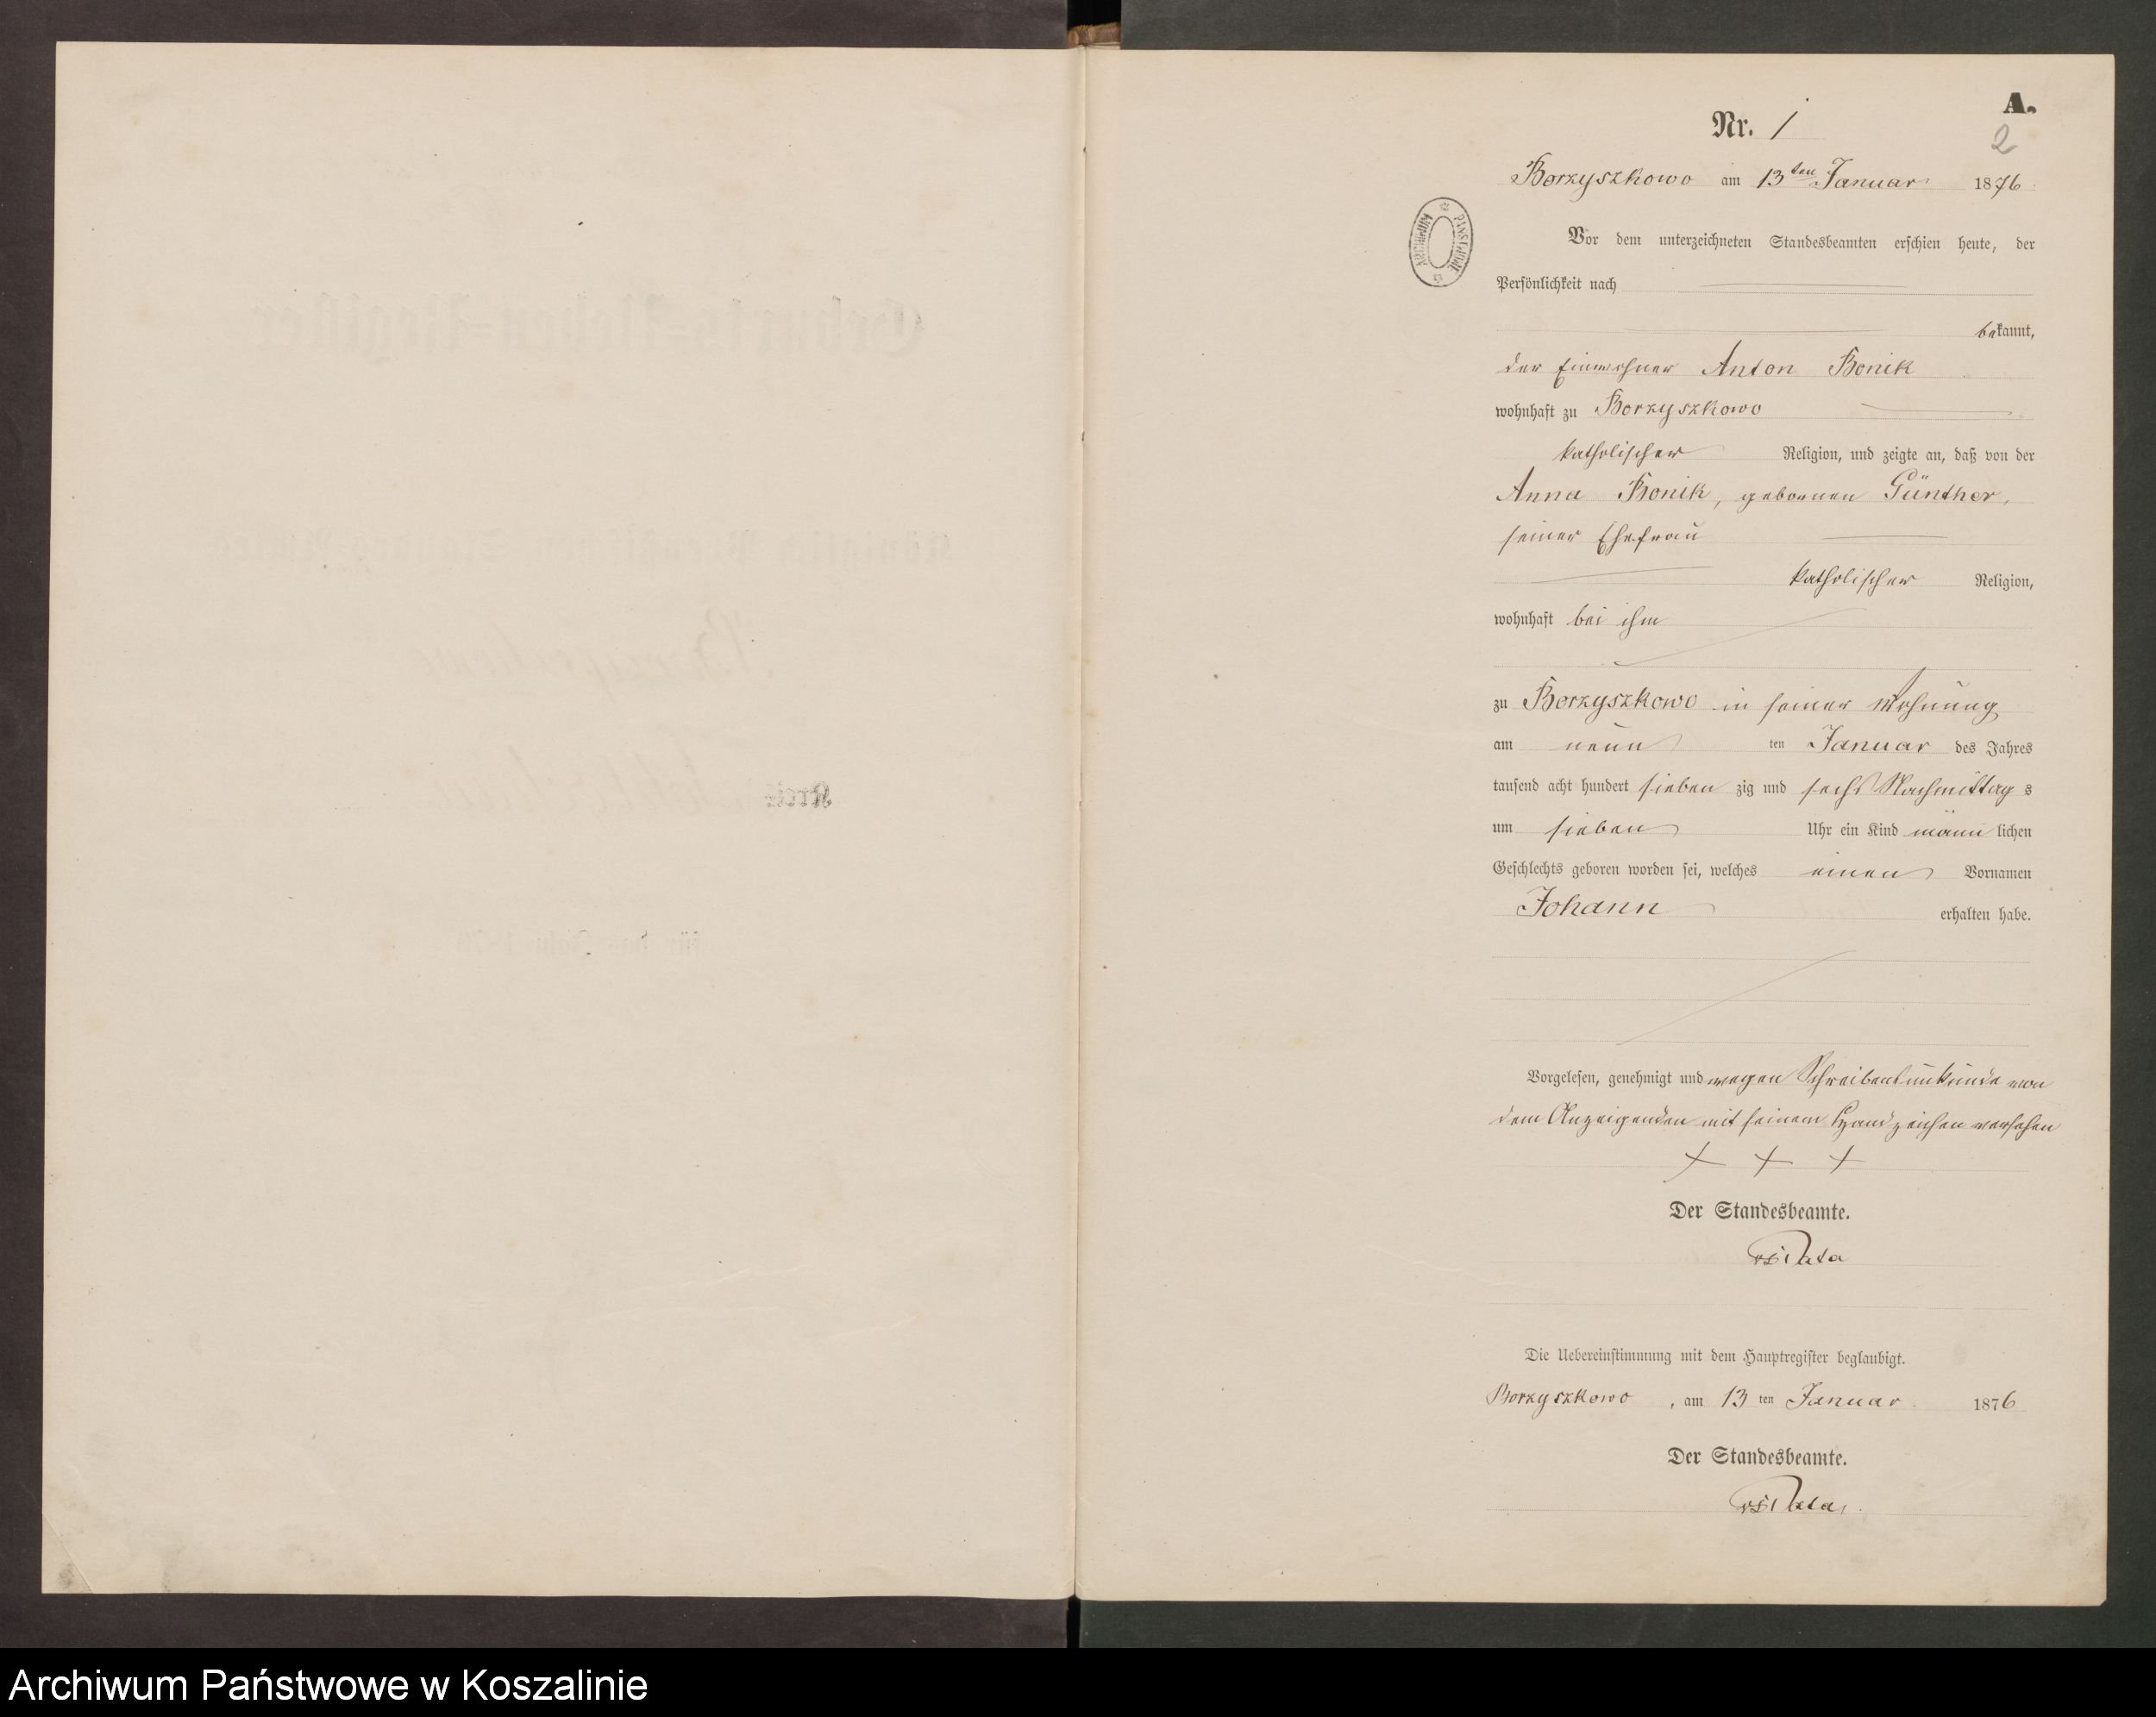 A.
Nr. 1
2
Borzyszkowo am 13ten Januar 1876
ARCHIWUM PAŃSTWOWE
Vor dem unterzeichneten Standesbeamten erschien heute, der
Persönlichkeit nach
bekannt,
der Einwohner Anton Bonik
wohnhaft zu Borzyszkowo
katholischer Religion, und zeigte an, daß von der
Anna Bonik, gebornen Günther,
seiner Ehefrau
katholischer Religion,
wohnhaft bei ihm
zu Borzyszkowo in seiner Wohnung
am neun ten Januar des Jahres
tausend acht hundert sieben zig und sechs Nachmittag s
um sieben Uhr ein Kind männ lichen
Geschlechts geboren worden sei, welches einen Vornamen
Johann erhalten habe.
Vorgelesen, genehmigt und wegen Schreibensunkunde von
dem Anzeigenden mit seinem Handzeichen versehen
+ + +
Der Standesbeamte.
Die Uebereinstimmung mit dem Hauptregister beglaubigt.
Borzyszkowo, am 13 ten Januar 1876
Der Standesbeamte.
Archiwum Państwowe w Koszalinie